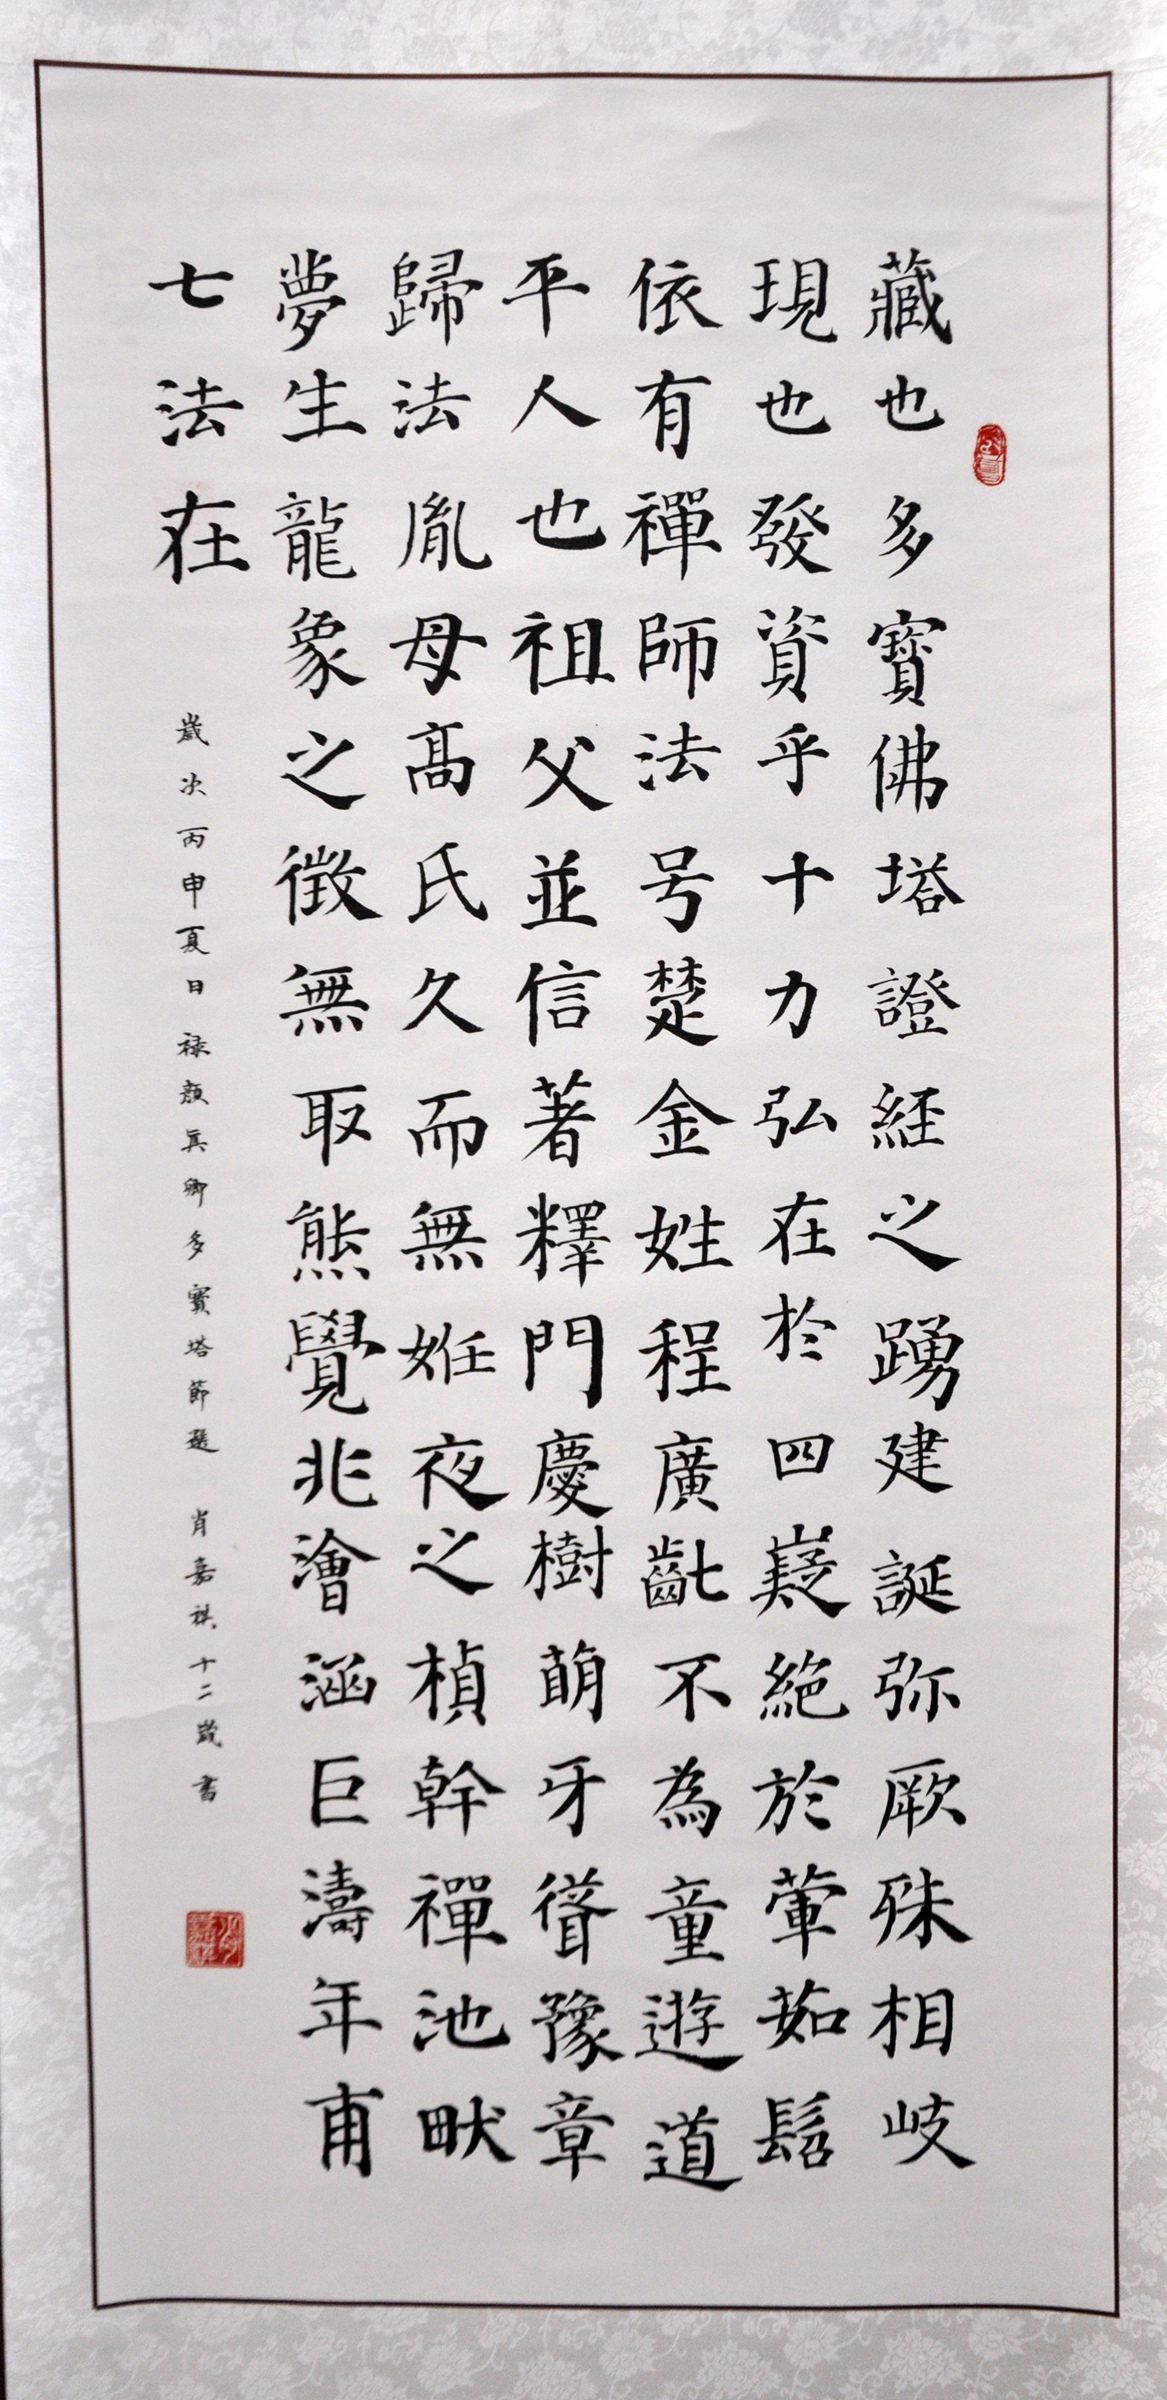 藏也多寶佛塔證經之踴建誕弥厥殊相岐
現也發資乎十力弘在於四嶷絶於葷茹髫
依有禪師法号楚金姓程廣齔不為童遊道
平人也祖父並信著釋門慶樹萌牙聟豫章
歸法胤母高氏久而無姙夜之楨幹禪池畎
夢生龍象之徵無取熊覺兆澮涵巨濤年甫
七法在
歲次丙申夏日禄顔真卿多寶塔節選 肖嘉祺十二歲書